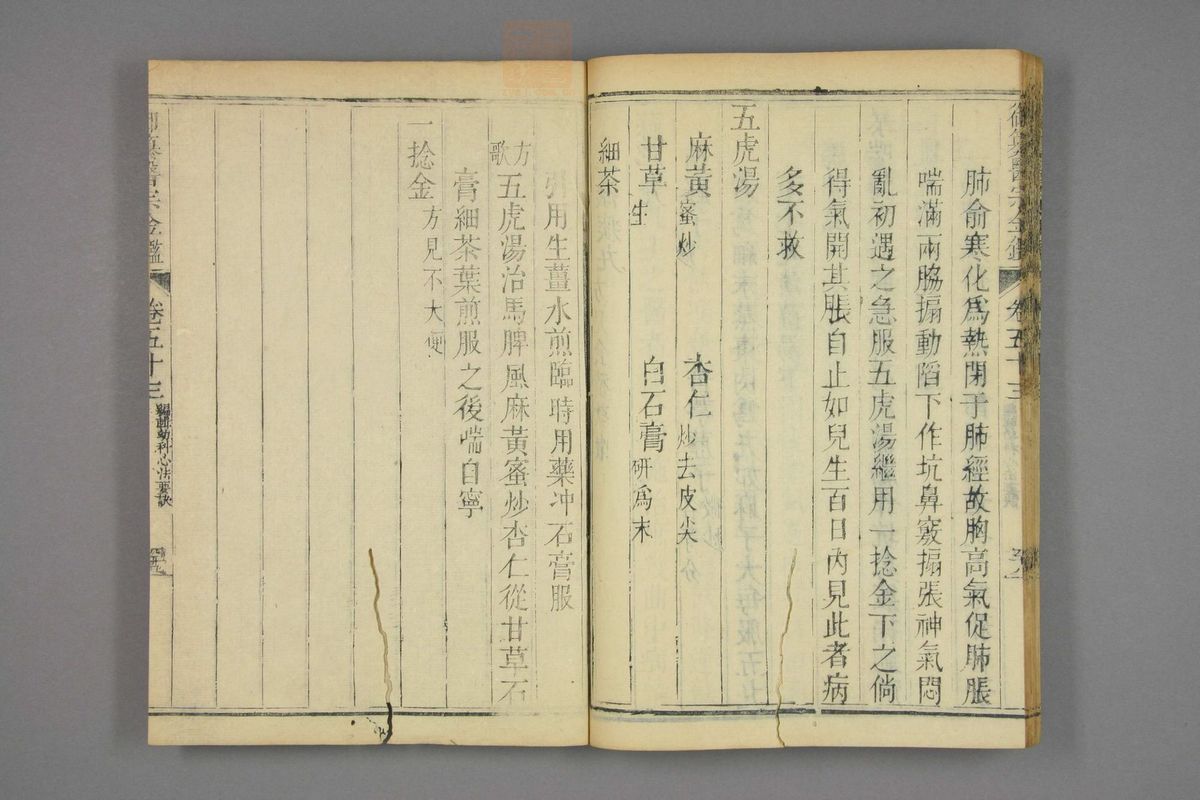 肺俞寒化爲熱閉于肺經故胸高氣促肺脹
喘滿兩脇搧動陷下作坑鼻竅搧張神氣悶
亂初遇之急服五虎湯繼用一捻金下之倘
得氣開其脹自止如兒生百日內見此者病
多不救
五虎湯
麻黃蜜炒 杏仁炒去皮尖
甘草生 白石膏研爲末
細茶
引用生薑水煎臨時用藥冲石膏服
方歌 五虎湯治馬脾風麻黃蜜炒杏仁從甘草石
膏細茶葉煎服之後喘自寧
一捻金方見不大便
御纂醫宗金鑑 卷五十三 編輯幼科心法要訣